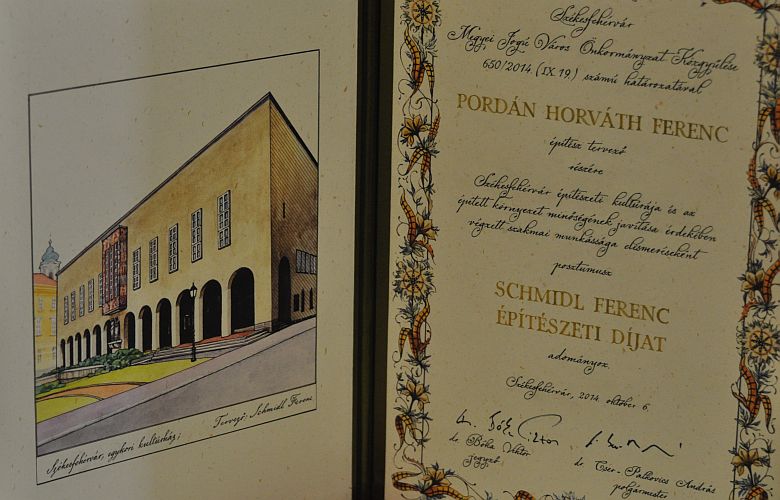 Székesfehérvár, egykori kultúrház;
Tervező: Schmidl Ferenc
Székesfehérvár
Megyei Jogú Város Önkormányzat Közgyűlése
650/2014. (IX. 19.) számú határozatával
PORDÁN HORVÁTH FERENC
építész tervező
részére
Székesfehérvár építészeti kultúrája és az
épített környezet minőségének javítása érdekében
végzett szakmai munkássága elismeréseként
posztumusz
SCHMIDL FERENC
ÉPÍTÉSZETI DÍJAT
adományoz.
Székesfehérvár, 2014. október 6.
dr. Bóka Viktor
jegyző
dr. Cser-Palkovics András
polgármester